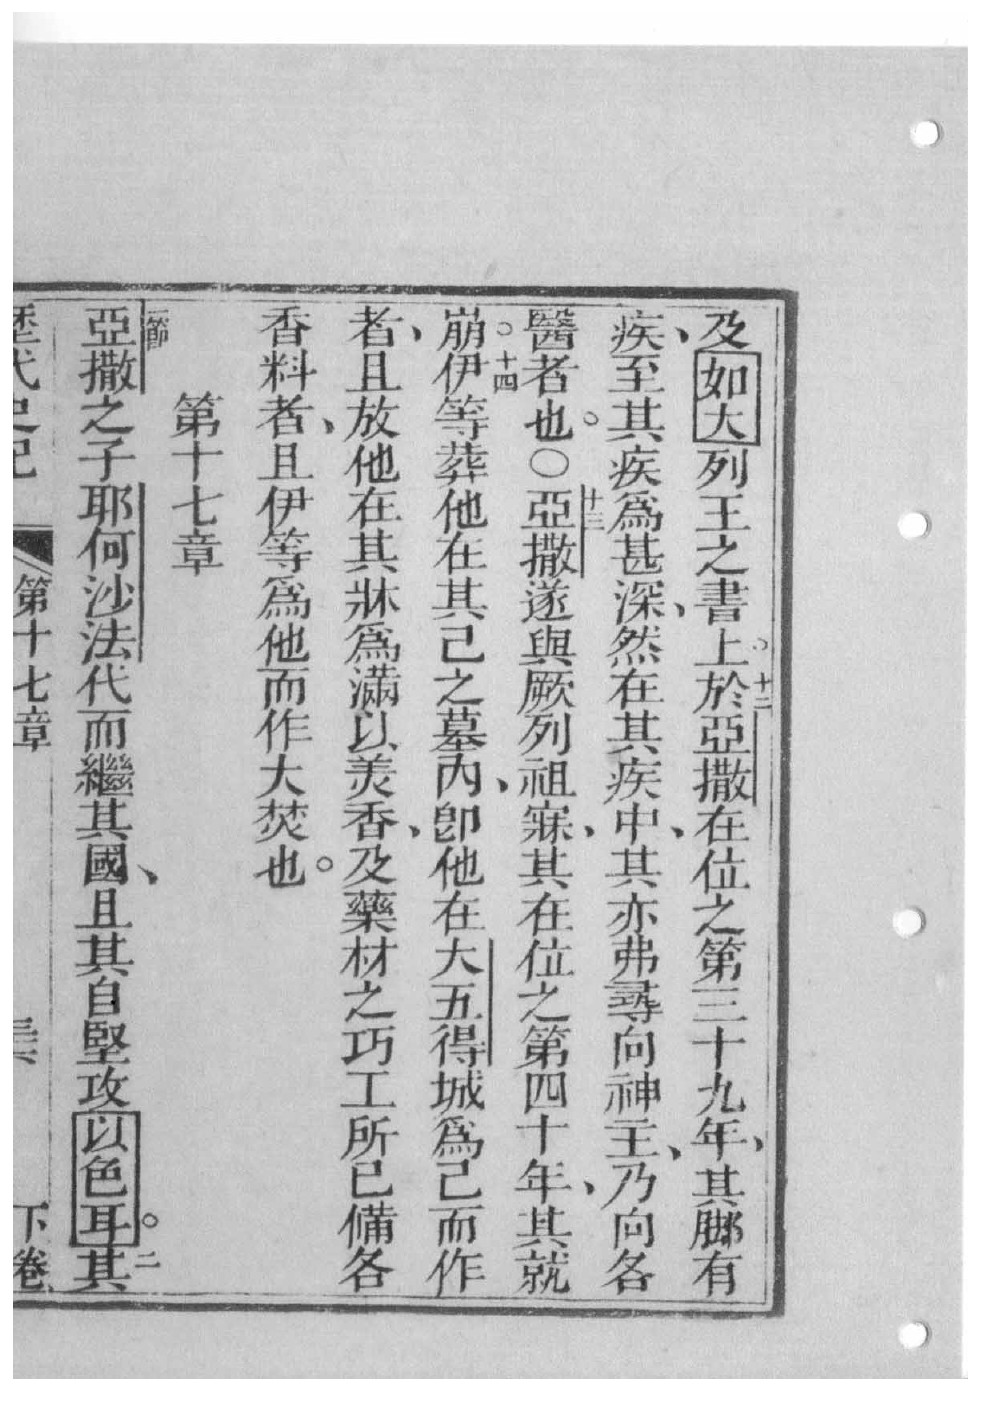 及如大列王之書上。十二於亞撒在位之第三十九年、其腳有
疾、至其疾爲甚深、然在其疾中、其亦弗尋向神主、乃向各
醫者也。○十三亞撒遂與厥列祖寐、其在位之第四十年、其就
崩。十四伊等葬他在其己之墓內、卽他在大五得城爲己而作
者、且放他在其牀爲滿以美香、及藥材之巧工所已備各
香料者、且伊等爲他而作大焚也。
第十七章
一節亞撒之子耶何沙法代而繼其國、且其自堅攻以色耳。二其
歷代史記 第十七章 下卷